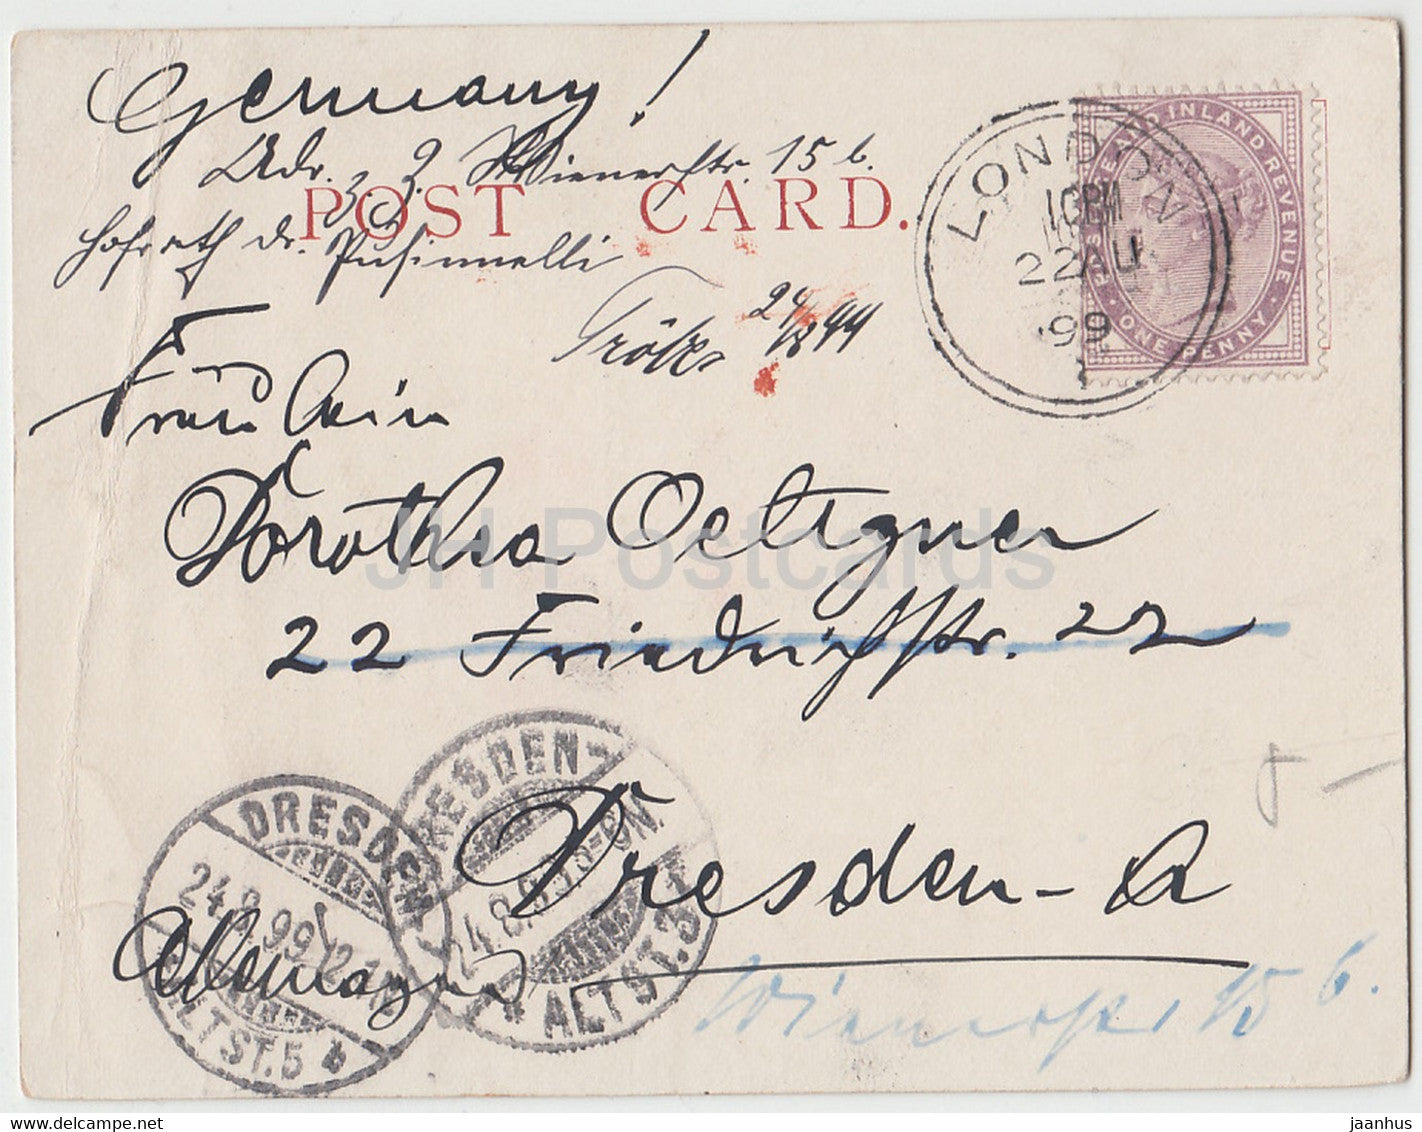 Germany!
Adr. z. Z. Wienerstr. 15 b.
POST CARD.
Hofrath Dr. Pusinnelli
24/8 99
Fräulein
Dorothea Oetigner
22 Friedrichstr. 22
Dresden-A
Allemagne
Wienerstr 15 b.
LONDON
10PM
22 AU
99
POSTAGE AND INLAND REVENUE
ONE PENNY
DRESDEN
24.8.99.
ALTST. 5 b
DRESDEN-
24.8.99.
ALTST. 3
JH Postcards
www.delcampe.net
jaanhus